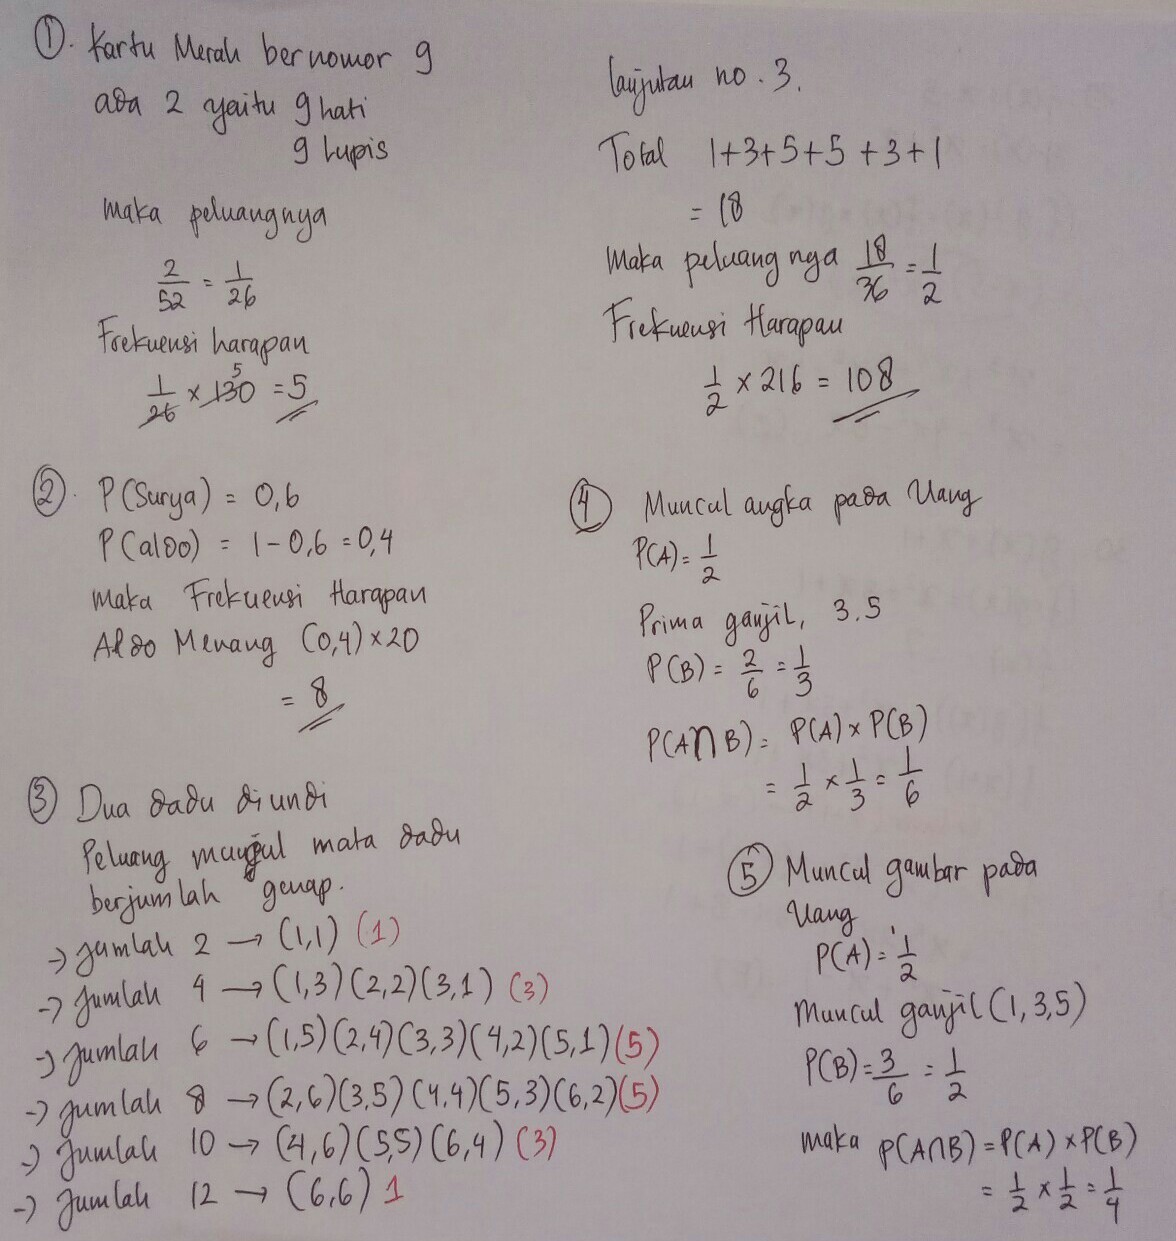 ① . Kartu Merah bernomor 9
ada 2 yaitu 9 hati
9 lupis
maka peluangnya
2/52 = 1/26
Frekuensi harapan
1/26 × 130 = 5
5
② . P(Surya) = 0,6
P(aldo) = 1-0,6 = 0,4
maka Frekuensi Harapan
Aldo Menang (0,4) × 20
= 8
③ Dua dadu diundi
Peluang muncul mata dadu
berjumlah genap.
→ jumlah 2 → (1,1) (1)
→ jumlah 4 → (1,3) (2,2) (3,1) (3)
→ jumlah 6 → (1,5) (2,4) (3,3) (4,2) (5,1) (5)
→ jumlah 8 → (2,6) (3,5) (4,4) (5,3) (6,2) (5)
→ jumlah 10 → (4,6) (5,5) (6,4) (3)
→ jumlah 12 → (6,6) 1
lanjutan no. 3.
Total 1+3+5+5+3+1
= 18
Maka peluang nya 18/36 = 1/2
Frekuensi Harapan
1/2 × 216 = 108
④ Muncul angka pada Uang
P(A) = 1/2
Prima ganjil, 3.5
P(B) = 2/6 = 1/3
P(A∩B) = P(A) × P(B)
= 1/2 × 1/3 = 1/6
⑤ Muncul gambar pada
Uang
P(A) = 1/2
Muncul ganjil (1,3,5)
P(B) = 3/6 = 1/2
maka P(A∩B) = P(A) × P(B)
= 1/2 × 1/2 = 1/4